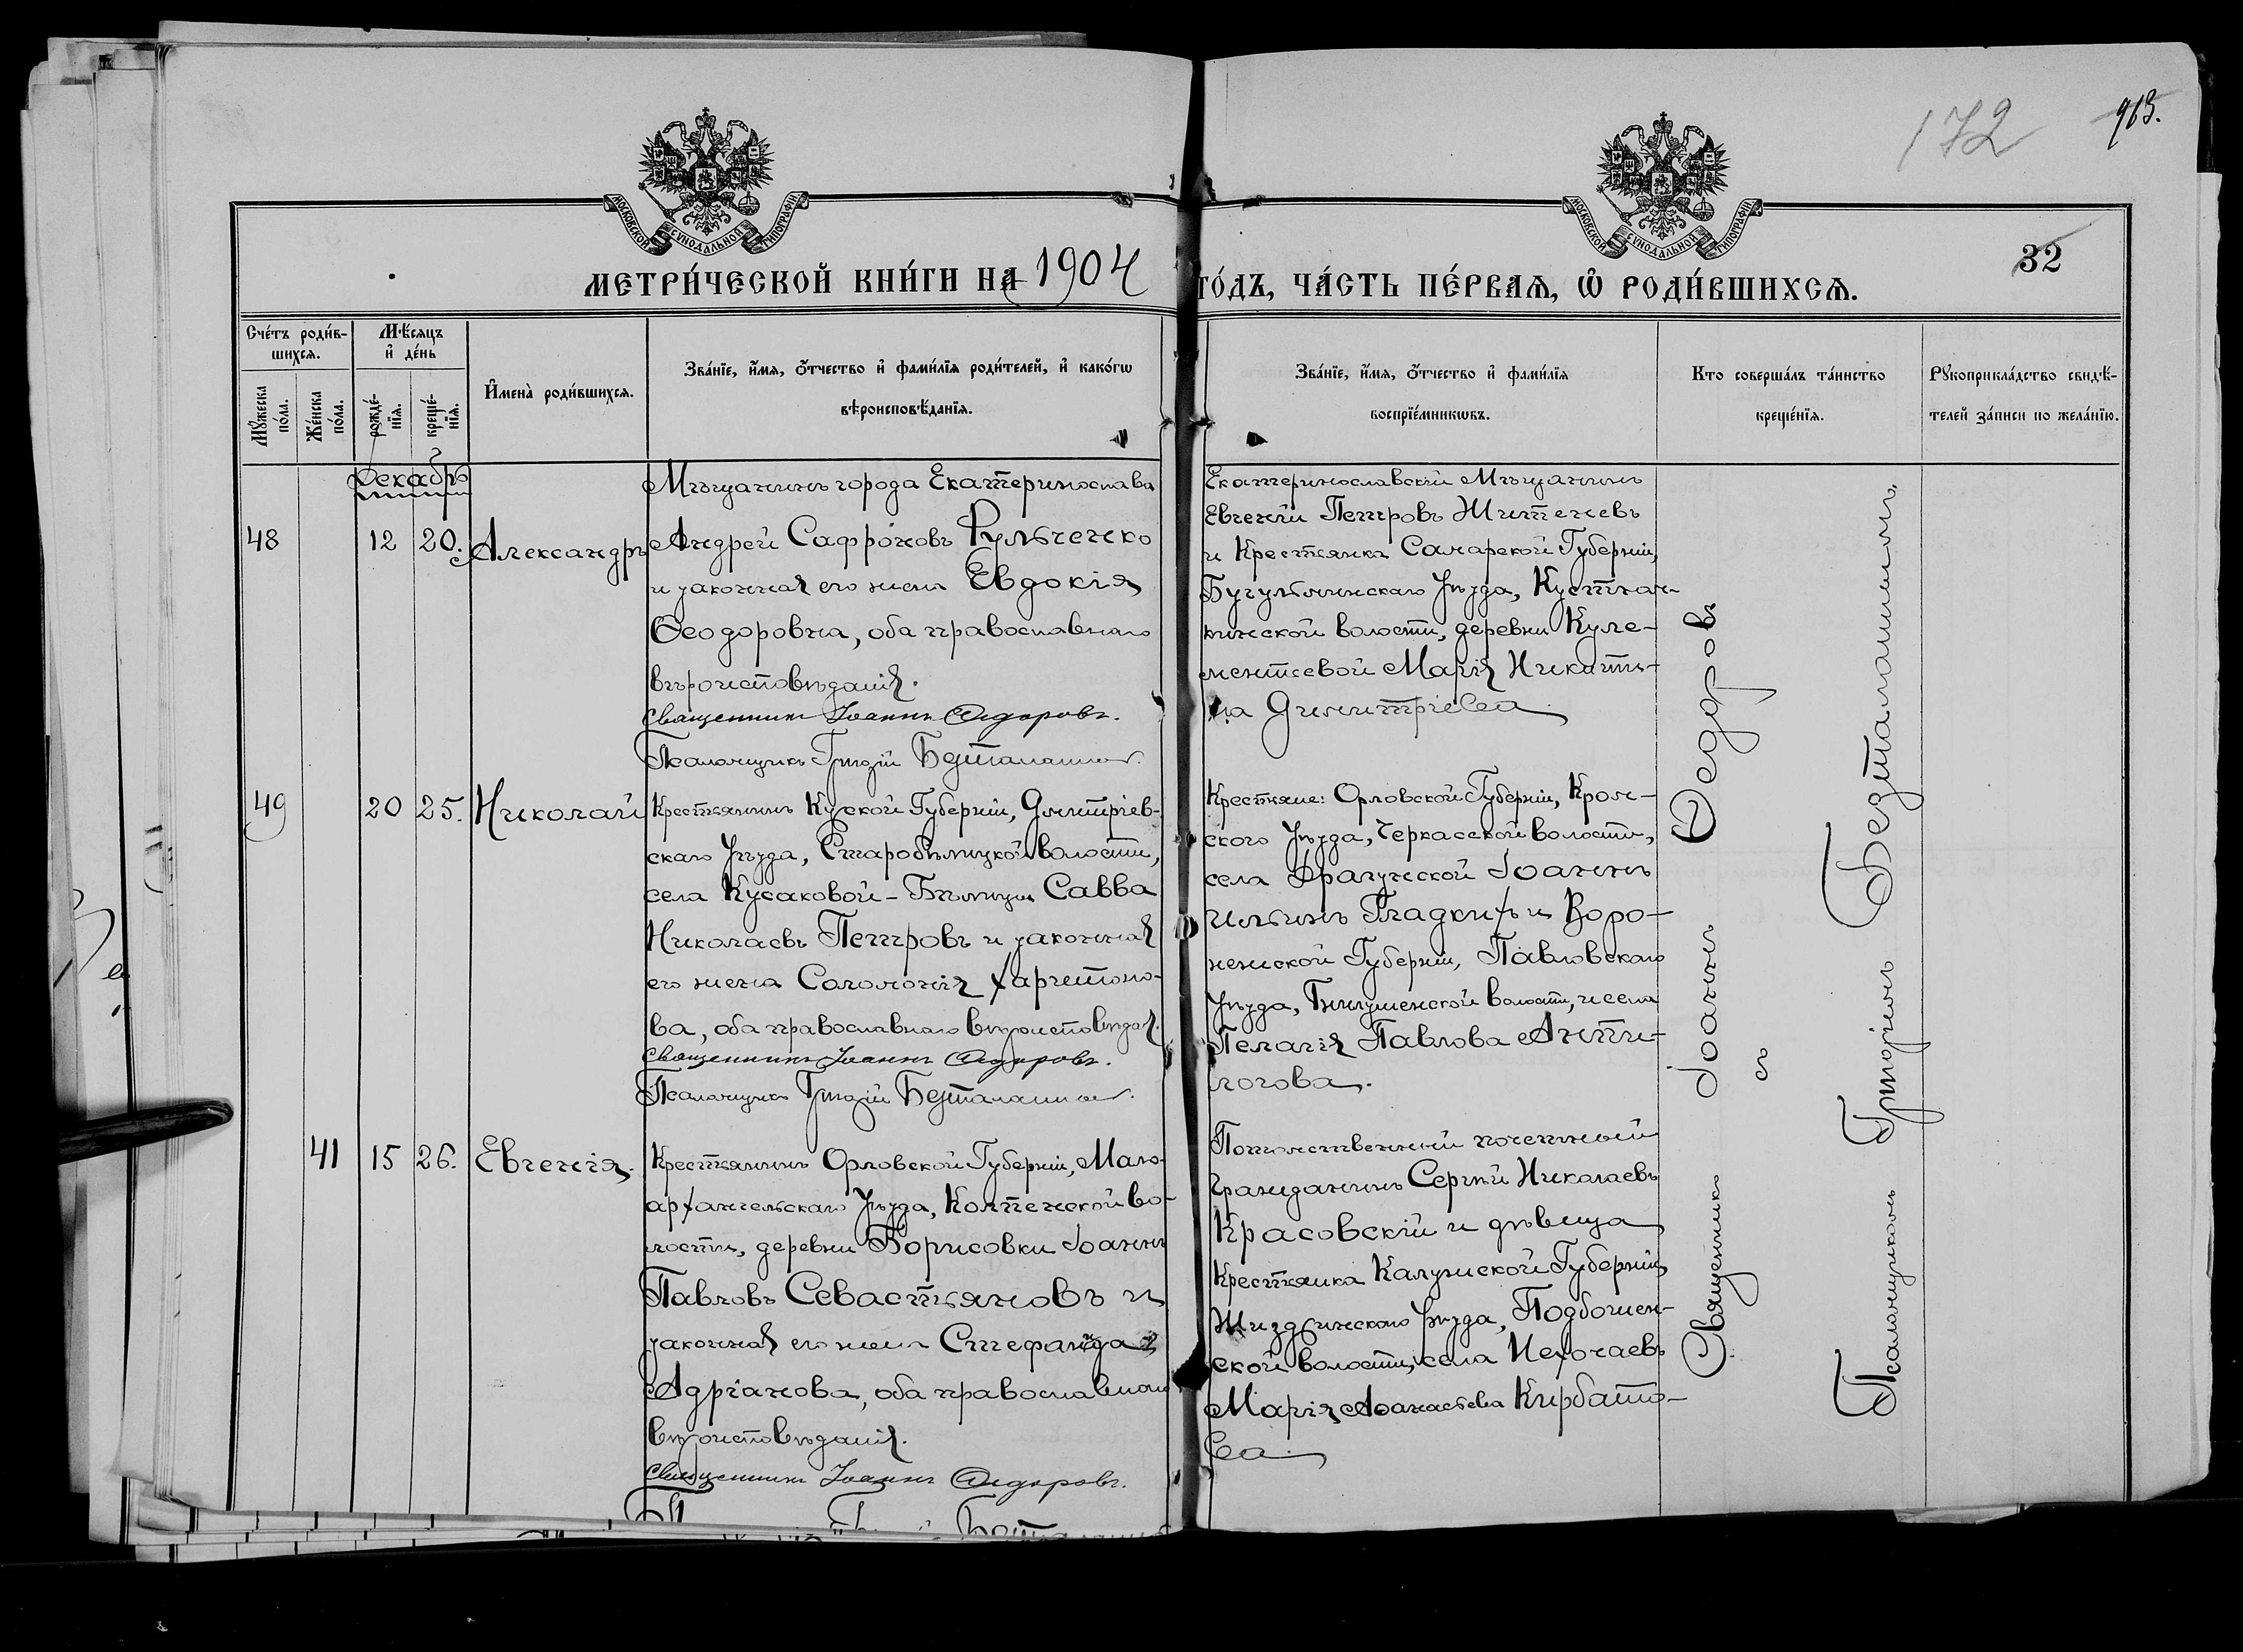 172
913.
МОСКОВСКОЙ СѴНОДАЛЬНОЙ ТИПОГРАФІИ
МОСКОВСКОЙ СѴНОДАЛЬНОЙ ТИПОГРАФІИ
32
МЕТРИ́ЧЕСКОЙ КНИ́ГИ НА 1904 ГО́ДЪ, ЧА́СТЬ ПЕ́РВАѦ, Ѽ РОДИ́ВШИХСѦ.
Сче́тъ роди́в-
шихсѧ.
Мѣ́сѧцъ
и҆ де́нь
Мꙋ́жеска по́ла.
Же́нска по́ла.
рожде́-
нїѧ.
креще́-
нїѧ.
И҆мена̀ роди́вшихсѧ.
Зва́нїе, и҆́мѧ, ѻ҆́тчество и҆ фами́лїѧ роди́телей, и҆ како́гѡ
вѣроисповѣ́данїѧ.
Зва́нїе, и҆́мѧ, ѻ҆́тчество и҆ фами́лїѧ
воспрїе́мникѡвъ.
Кто соверша́лъ та́инство
креще́нїѧ.
Рꙋкоприкла́дство свидѣ́-
телей за́писи по жела́нїю.
Декабрь
48 12 20. Александръ
Мѣщанинъ города Екатеринослава
Андрей Сафроновъ Рульченко
и законная его жена Евдокія
Ѳеодоровна, оба православнаго
вѣроисповѣданія.
Священникъ Іоаннъ Ѳедоровъ.
Псаломщикъ Григорій Безталанный.
Екатеринославскій Мѣщанинъ
Евгеній Петровъ Житеневъ
и Крестьянка Самарской Губерніи,
Бугульминскаго Уѣзда,
волости, деревни Куле-
ментсевой Марія Никити-
на Димитріева
49 20 25. Николай
Крестьянинъ Курской Губерніи, Дмитріев-
скаго Уѣзда, Старобѣлицкой волости,
села Кусаковой-Бѣлицы Савва
Николаевъ Петровъ и законная
его жена Саломонія Харитоно-
ва, оба православнаго вѣроисповѣдан.
Священникъ Іоаннъ Ѳедоровъ.
Псаломщикъ Григорій Безталанный.
Крестьяне: Орловской Губерніи, Кром-
ского Уѣзда, Черкасской волости,
села Драгунской Іоаннъ
Ильинъ Гладкихъ и Воро-
нежской Губерніи, Павловскаго
Уѣзда, волости, и села
Пелагія Павлова Анти-
логова.
41 15 26. Евгенія.
Крестьянинъ Орловской Губерніи, Мало-
архангельскаго Уѣзда, Колпенской во-
лости, деревни Борисовки Іоаннъ
Павловъ Севастьяновъ и
законная его жена Стефанида
Адріанова, оба православнаго
вѣроисповѣданія.
Священникъ Іоаннъ Ѳедоровъ.
Потомственный почетный
гражданинъ Сергѣй Николаевъ
Красовскій и дѣвица
Крестьянка Калужской Губерніи,
Жиздринскаго Уѣзда, Подбужен-
ской волости, села
Марія Аѳанасьева Курбато-
ва.
Священникъ Іоаннъ Ѳедоровъ
съ
Псаломщикомъ Григоріемъ Безталаннымъ.